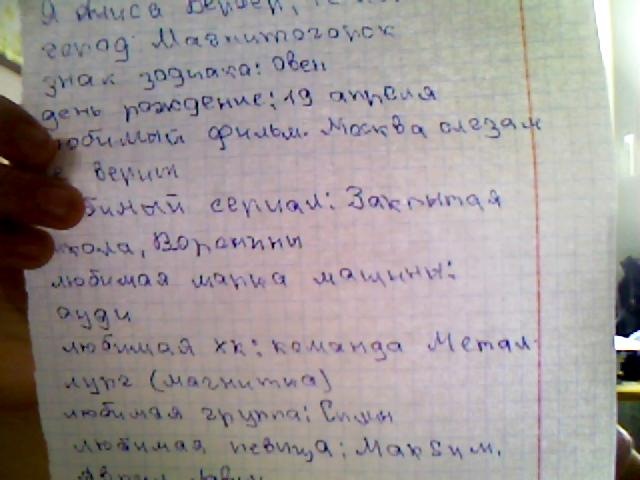 Я Алиса
город: Магнитогорск
знак зодиака: Овен
день рождение: 19 апреля
любимый фильм. Москва слезам
верит
бимый сериал: Закрытая
кола, Воронины
любимая марка машины:
ауди
любимая хк: команда Метал-
лург (магнитка)
любимая группа: Сплин
любимая певица: МакSим.